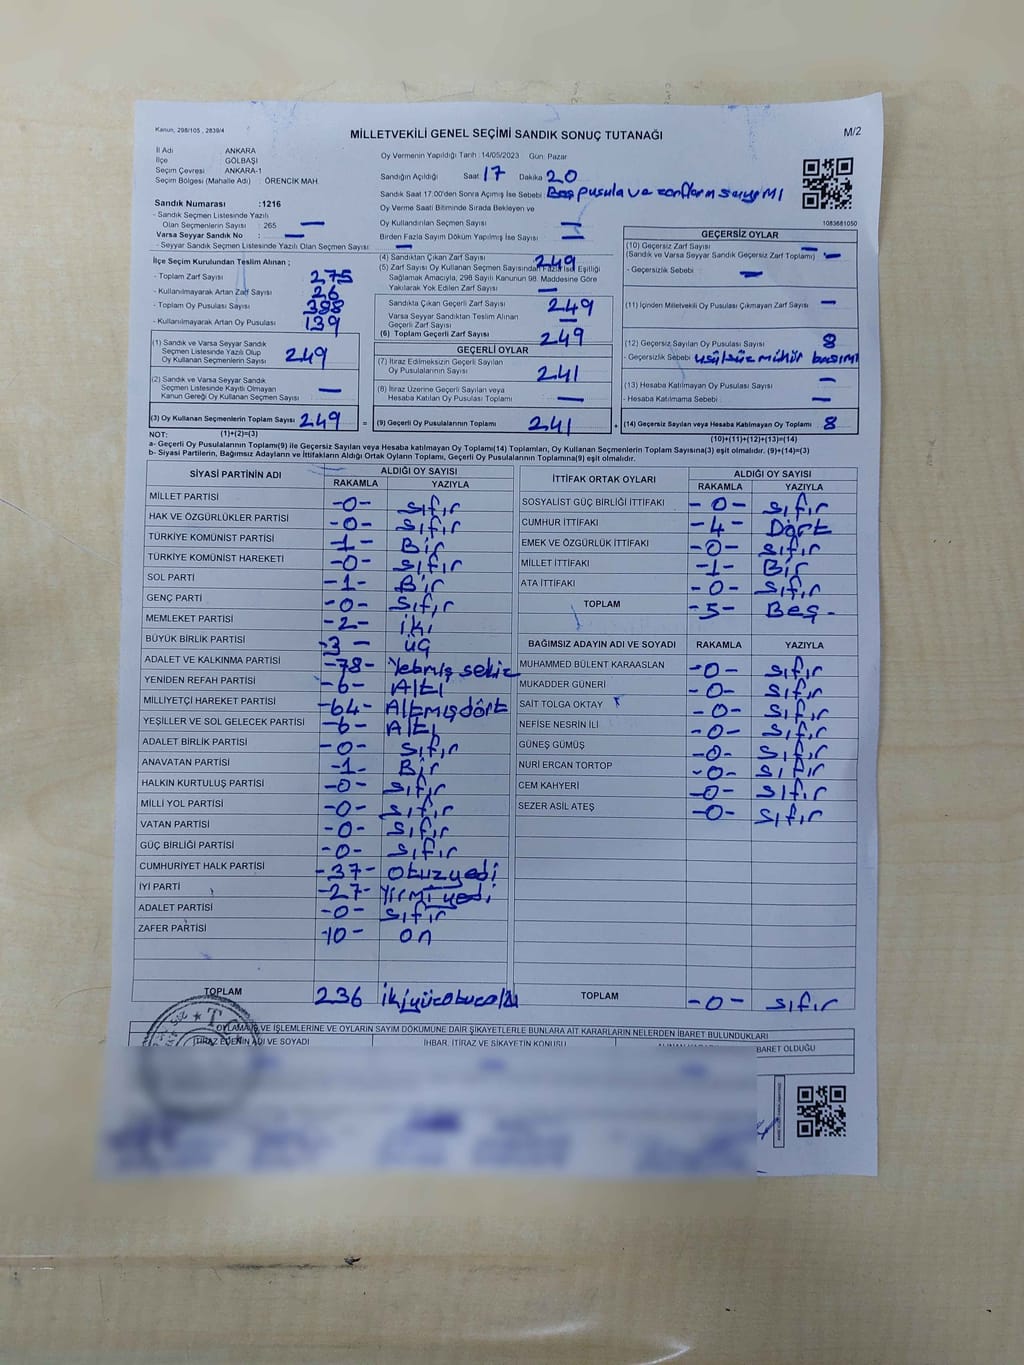 Kanun, 298/105 , 2839/4
MİLLETVEKİLİ GENEL SEÇİMİ SANDIK SONUÇ TUTANAĞI
M/2
İl Adı ANKARA
İlçe GÖLBAŞI
Seçim Çevresi ANKARA-1
Seçim Bölgesi (Mahalle Adı) : ÖRENCİK MAH.
Oy Vermenin Yapıldığı Tarih : 14/05/2023 Gün: Pazar
Sandığın Açıldığı Saat 17 Dakika 20
Sandık Saat 17:00'den Sonra Açılmış İse Sebebi : Boş pusula ve zarfların sayımı
Oy Verme Saati Bitiminde Sırada Bekleyen ve
Oy Kullandırılan Seçmen Sayısı —
Birden Fazla Sayım Döküm Yapılmış İse Sayısı —
1083681050
Sandık Numarası :1216
- Sandık Seçmen Listesinde Yazılı
Olan Seçmenlerin Sayısı : 265 —
Varsa Seyyar Sandık No : —
- Seyyar Sandık Seçmen Listesinde Yazılı Olan Seçmen Sayısı : —
İlçe Seçim Kurulundan Teslim Alınan ;
- Toplam Zarf Sayısı 275
- Kullanılmayarak Artan Zarf Sayısı 26
- Toplam Oy Pusulası Sayısı 388
- Kullanılmayarak Artan Oy Pusulası 139
(1) Sandık ve Varsa Seyyar Sandık
Seçmen Listesinde Yazılı Olup
Oy Kullanan Seçmenlerin Sayısı 249
(2) Sandık ve Varsa Seyyar Sandık
Seçmen Listesinde Kayıtlı Olmayan
Kanun Gereği Oy Kullanan Seçmen Sayısı —
(3) Oy Kullanan Seçmenlerin Toplam Sayısı 249 =
(1)+(2)=(3)
(4) Sandıktan Çıkan Zarf Sayısı 249
(5) Zarf Sayısı Oy Kullanan Seçmen Sayısından Fazla ise, Eşitliği
Sağlamak Amacıyla, 298 Sayılı Kanunun 98. Maddesine Göre
Yakılarak Yok Edilen Zarf Sayısı —
Sandıkta Çıkan Geçerli Zarf Sayısı 249
Varsa Seyyar Sandıktan Teslim Alınan
Geçerli Zarf Sayısı —
(6) Toplam Geçerli Zarf Sayısı 249
GEÇERLİ OYLAR
(7) İtiraz Edilmeksizin Geçerli Sayılan
Oy Pusulalarının Sayısı 241
(8) İtiraz Üzerine Geçerli Sayılan veya
Hesaba Katılan Oy Pusulası Toplamı —
(9) Geçerli Oy Pusulalarının Toplamı 241 +
GEÇERSİZ OYLAR
(10) Geçersiz Zarf Sayısı —
(Sandık ve Varsa Seyyar Sandık Geçersiz Zarf Toplamı) —
- Geçersizlik Sebebi : —
(11) İçinden Milletvekili Oy Pusulası Çıkmayan Zarf Sayısı —
(12) Geçersiz Sayılan Oy Pusulası Sayısı 8
- Geçersizlik Sebebi : usülsüz mühür basımı
(13) Hesaba Katılmayan Oy Pusulası Sayısı —
- Hesaba Katılmama Sebebi : —
(14) Geçersiz Sayılan veya Hesaba Katılmayan Oy Toplamı 8
(10)+(11)+(12)+(13)=(14)
NOT:
a- Geçerli Oy Pusulalarının Toplamı(9) ile Geçersiz Sayılan veya Hesaba katılmayan Oy Toplamı(14) Toplamları, Oy Kullanan Seçmenlerin Toplam Sayısına(3) eşit olmalıdır. (9)+(14)=(3)
b- Siyasi Partilerin, Bağımsız Adayların ve İttifakların Aldığı Ortak Oyların Toplamı, Geçerli Oy Pusulalarının Toplamına(9) eşit olmalıdır.
SİYASİ PARTİNİN ADI ALDIĞI OY SAYISI
RAKAMLA YAZIYLA
MİLLET PARTİSİ -0- sıfır
HAK VE ÖZGÜRLÜKLER PARTİSİ -0- sıfır
TÜRKİYE KOMÜNİST PARTİSİ -1- Bir
TÜRKİYE KOMÜNİST HAREKETİ -0- sıfır
SOL PARTİ -1- Bir
GENÇ PARTİ -0- sıfır
MEMLEKET PARTİSİ -2- iki
BÜYÜK BİRLİK PARTİSİ -3- üç
ADALET VE KALKINMA PARTİSİ -78- Yetmiş sekiz
YENİDEN REFAH PARTİSİ -6- Altı
MİLLİYETÇİ HAREKET PARTİSİ -64- Altmışdört
YEŞİLLER VE SOL GELECEK PARTİSİ -6- Altı
ADALET BİRLİK PARTİSİ -0- sıfır
ANAVATAN PARTİSİ -1- Bir
HALKIN KURTULUŞ PARTİSİ -0- sıfır
MİLLİ YOL PARTİSİ -0- sıfır
VATAN PARTİSİ -0- sıfır
GÜÇ BİRLİĞİ PARTİSİ -0- sıfır
CUMHURİYET HALK PARTİSİ -37- otuzyedi
İYİ PARTİ -27- Yirmi yedi
ADALET PARTİSİ -0- sıfır
ZAFER PARTİSİ -10- on
TOPLAM 236
İTTİFAK ORTAK OYLARI ALDIĞI OY SAYISI
RAKAMLA YAZIYLA
SOSYALİST GÜÇ BİRLİĞİ İTTİFAKI -0- sıfır
CUMHUR İTTİFAKI -4- Dört
EMEK VE ÖZGÜRLÜK İTTİFAKI -0- sıfır
MİLLET İTTİFAKI -1- Bir
ATA İTTİFAKI -0- sıfır
TOPLAM -5- Beş-
BAĞIMSIZ ADAYIN ADI VE SOYADI RAKAMLA YAZIYLA
MUHAMMED BÜLENT KARAASLAN -0- sıfır
MUKADDER GÜNERİ -0- sıfır
SAİT TOLGA OKTAY -0- sıfır
NEFİSE NESRİN İLİ -0- sıfır
GÜNEŞ GÜMÜŞ -0- sıfır
NURİ ERCAN TORTOP -0- sıfır
CEM KAHYERİ -0- sıfır
SEZER ASİL ATEŞ -0- sıfır
TOPLAM -0- sıfır
OYLAMA İŞ VE İŞLEMLERİNE VE OYLARIN SAYIM DÖKÜMÜNE DAİR ŞİKAYETLERLE BUNLARA AİT KARARLARIN NELERDEN İBARET BULUNDUKLARI
İTİRAZ EDENİN ADI VE SOYADI İHBAR, İTİRAZ VE ŞİKAYETİN KONUSU